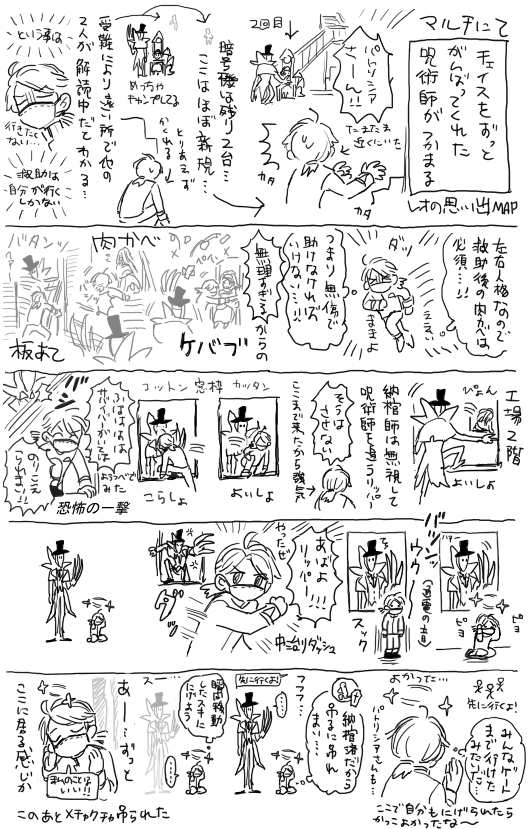 マルチにて
チェイスをずっと
がんばってくれた
呪術師がつかまる
レオの思い出MAP
2回目
パトリシア
さーん!!
たまたま
近くにいた
カタ
カタ
暗号機は残り2台…
ここはほぼ新規…
めっちゃ
チャンプしてる
とりあえず
かくれる
受難により遠い所で他の
2人が解読中だとわかる…
という事は
行きたく
ない…
救助は
自分が行く
しかない
左右人格なので
救助後の肉かべは
必須…!!
ええい
ダッ
ままよ
つまり無傷で
助けなければ
いけない…!!
無理すぎる
からの
肉かべ
ケバブ
バタンッ
板あて
工場2階
ぴょん
よいしょ
納棺師は無視して
呪術師を追うリッパー
そうは
させない
ここまで来たから強気
コットン
窓枠
カッタン
よいしょ
こらしょ
ふはははは
ようつべで
みた
のりこえ
られまい!!
恐怖の一撃
バッ
ピヨ
ピヨ
ウウ
スック
あばよ
リッパー!!!
やったぜ
中治りダッシュ
みんなゲート
まで行けた
みたいだ…
先に行くよ!
よかった…
パトリシアさんも…
ここで自分もにげられたら
かっこよかったな〜
納棺済だから
吊るに吊れ
まい…
フフフ…
先に行くよ!
瞬間移動
したスキに
にげよう
スー…
あー…ずっと
ここに居る感じか
私のことは
いい!!
このあとメチャクチャ吊られた